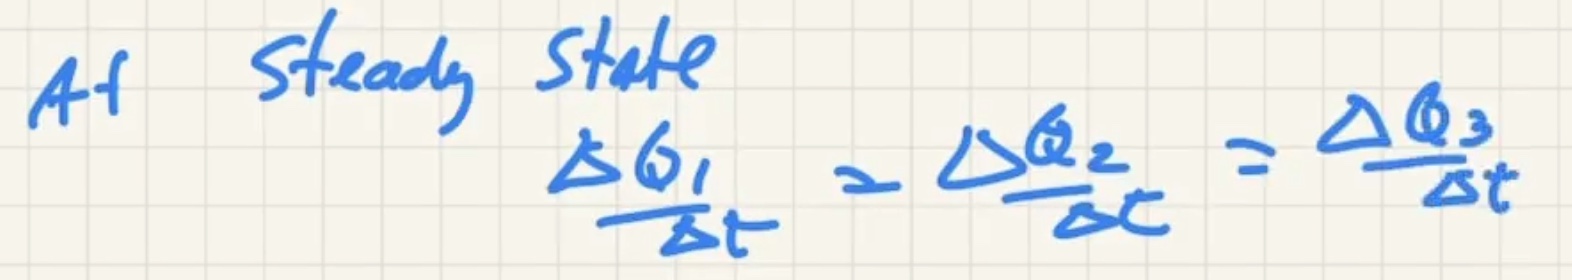 At Steady State
ΔQ1/Δt = ΔQ2/Δt = ΔQ3/Δt